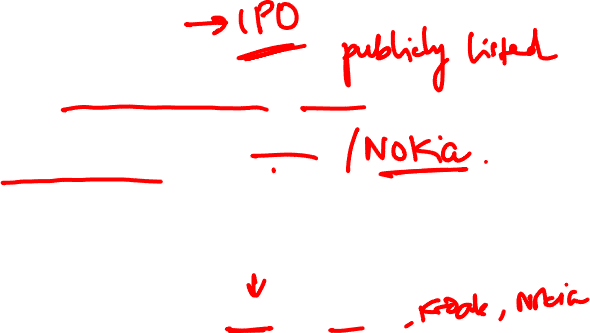 → IPO
publicly listed
/Nokia.
, Kodak, Nokia